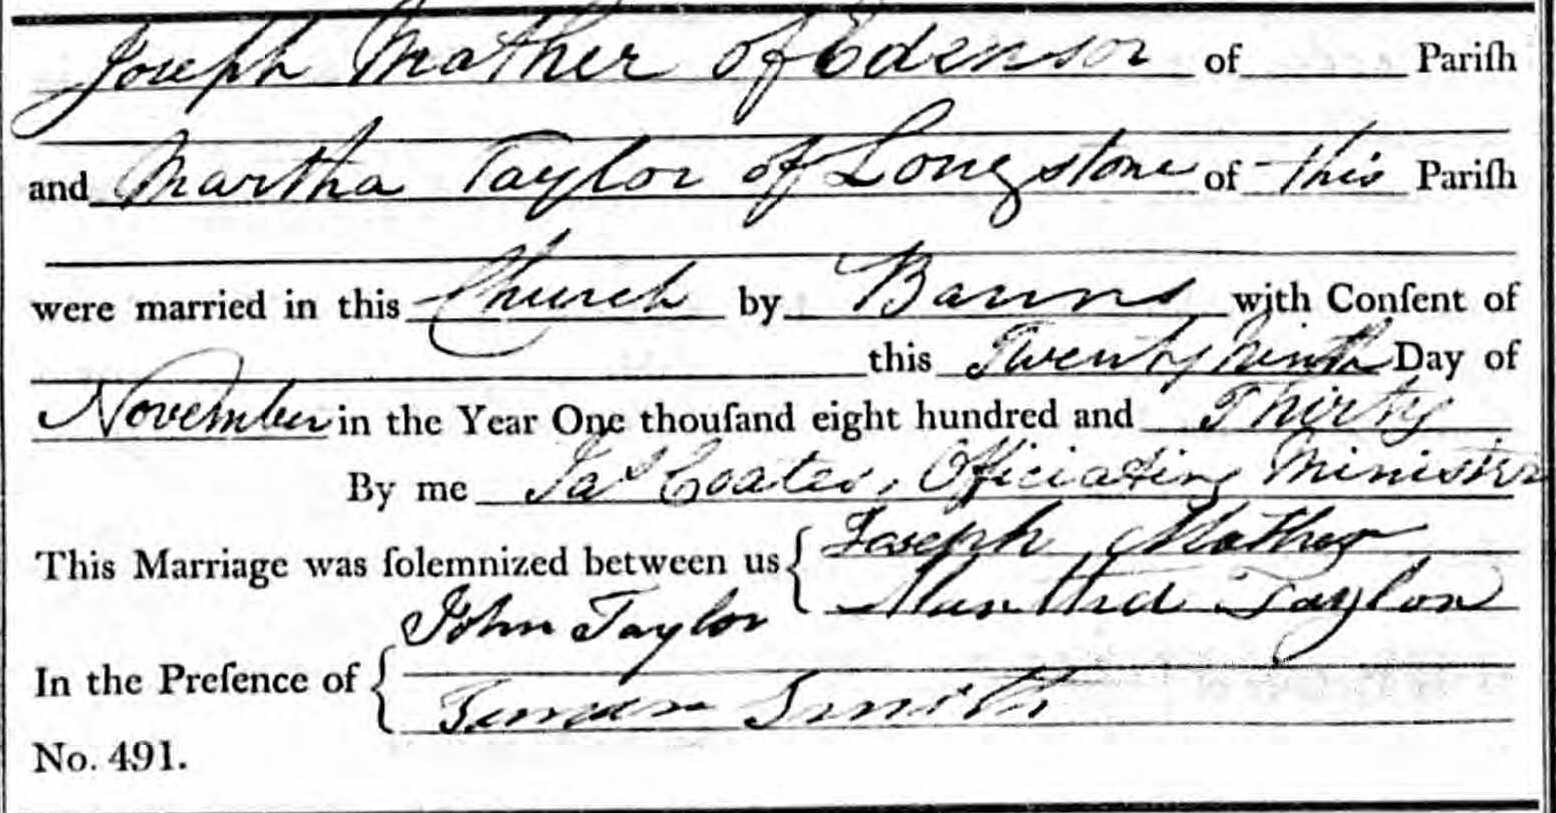 Joseph Mather of Edensor of Pariſh
and Martha Taylor of Longstone of this Pariſh
were married in this Church by Banns with Conſent of
this Twenty ninth Day of
November in the Year One thouſand eight hundred and Thirty
By me Jas Coates, Officiating Minister
This Marriage was ſolemnized between us { Joseph Mather
Martha Taylor
John Taylor
In the Preſence of {
Smith
No. 491.